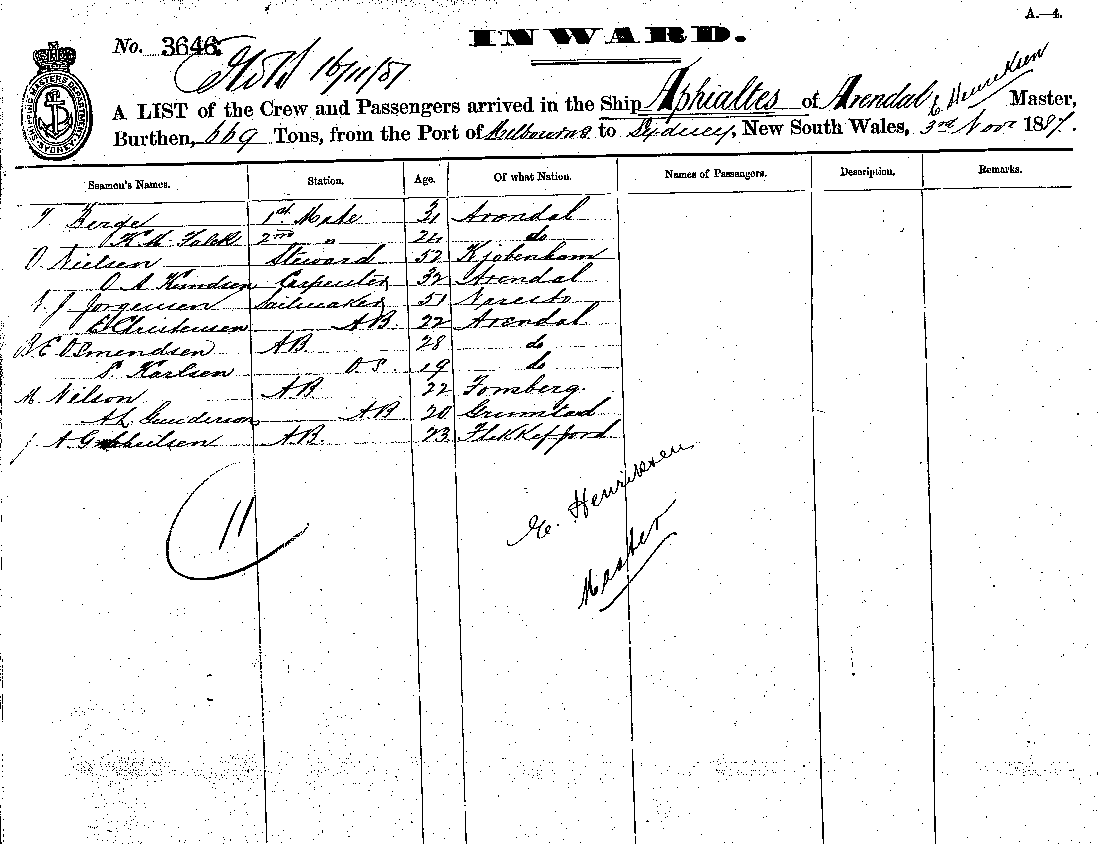 A.—4.
No. 3646.
INWARD.
16/11/87
A LIST of the Crew and Passengers arrived in the Ship Aphialtes of Arendal E Henriksen Master,
Burthen, 669 Tons, from the Port of Melbourne to Sydney, New South Wales, 3rd Novr 1887.
SHIPPING MASTERS DEPARTMENT SYDNEY
Seamen's Names. Station. Age. Of what Nation. Names of Passengers. Description. Remarks.
T Berge 1st Mate 31 Arendal
K M Falck 2nd " 24 do
O. Nielsen Steward 52 Kjobenhavn
O A Knudsen Carpenter 32 Arendal
Jorgensen Sailmaker 51 Naresto
E Christensen AB. 22 Arendal
B. E Osmendsen AB. 28 do
P. Karlsen O S. 19 do
M Nilson AB 22 Tonsberg.
A L Gunderson AB 20 Grimstad
J A AB. 23 Flekkefjord
11
E. Henriksen
Master